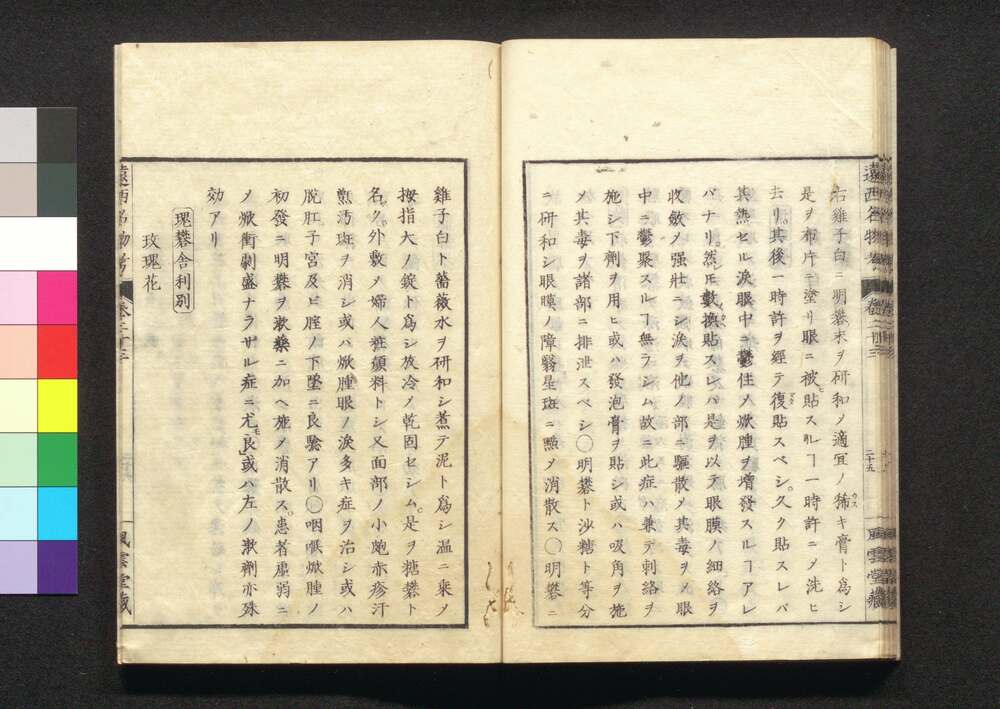 遠西名物考
卷二十三
二十五
風雲堂藏
右雞子白ニ明礬末ヲ研和メ適宜ノ稀キ膏ト爲シ
カス
是ヲ布片ニ塗リ眼ニ被貼スルヿ一時許ニメ洗ヒ
去リ。其後一時許ヲ經テ復貼スベシ。久ク貼スレバ
其熱セル淚眼中ニ鬱住メ焮腫ヲ增發スルヿアレ
バナリ。然モ數換貼スレバ是ヲ以テ眼膜ノ細絡ヲ
收斂メ强壯ニシ淚ヲ他ノ部ニ驅散メ其毒ヲメ眼
中ニ鬱聚スルヿ無ラシム故ニ此症ハ兼テ刺絡ヲ
施シ下劑ヲ用ヒ或ハ發泡膏ヲ貼シ或ハ吸角ヲ施
メ其毒ヲ諸部ニ排泄スベシ〇明礬ト沙糖ト等分
ニ研和シ眼膜ノ障翳星斑ニ㸃メ消散ス〇明礬ニ
雞子白ト薔薇水ヲ研和シ煮テ泥ト爲シ温ニ乘メ
按指大ノ錠ト爲シ放冷メ乾固セシム。是ヲ糖礬ト
名ク。外敷メ婦人粧顔料トシ又面部ノ小皰赤疹汗
㸃汚斑ヲ消シ或ハ焮腫眼ノ淚多キ症ヲ治シ或ハ
脫肛子宮及ヒ腟ノ下墜ニ良驗アリ〇咽喉焮腫ノ
初發ニ明礬ヲ漱藥ニ加ヘ施メ消散ス。患者虛弱ニ
メ焮衝劇盛ナラザル症ニ尤良。或ハ左ノ漱劑亦殊
効アリ
瑰礬舍利別
玫瑰花
遠西名物考
卷二十三
風雲堂藏